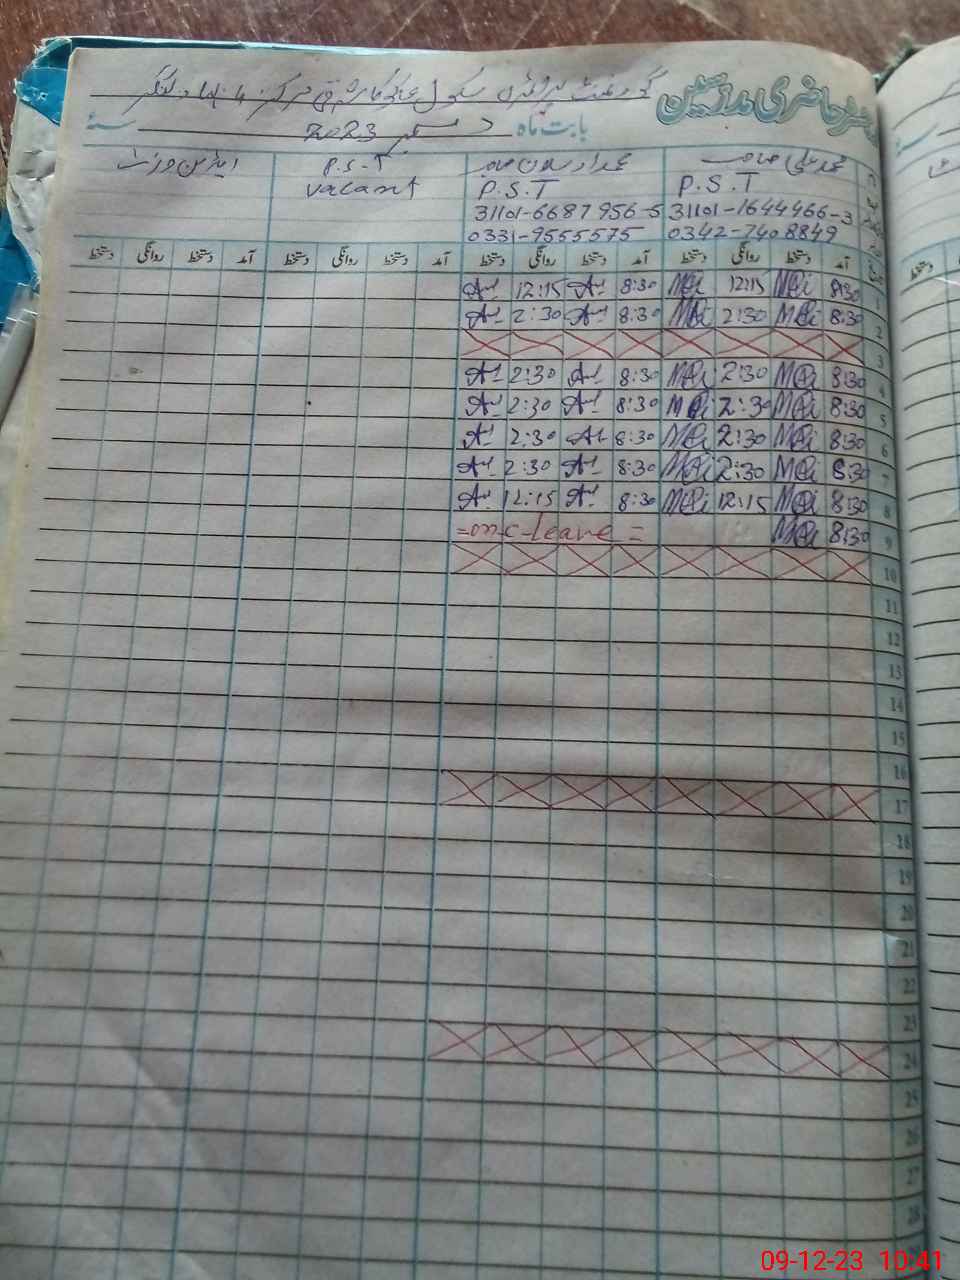 رجسٹر حاضری مدرسین
گورنمنٹ پرائمری سکول
بابت ماہ دسمبر 2023 سنہ
محمد علی صاحب محمد صاحب P.S.T
P.S.T P.S.T vacant
31101-1644466-3 31101-6687956-5
0342-7408849 0331-9555575
آمد دستخط روانگی دستخط آمد دستخط روانگی دستخط آمد دستخط روانگی دستخط آمد دستخط روانگی دستخط
1 8:30 MAli 12:15 MAli 8:30 12:15
2 8:30 MAli 2:30 MAli 8:30 2:30
3
4 8:30 MAli 2:30 MAli 8:30 2:30
5 8:30 MAli 2:30 MAli 8:30 2:30
6 8:30 MAli 2:30 MAli 8:30 2:30
7 8:30 MAli 2:30 MAli 8:30 2:30
8 8:30 MAli 12:15 MAli 8:30 12:15
9 8:30 MAli = on c-leave =
10
11
12
13
14
15
16
17
18
19
20
21
22
23
24
25
26
27
28
09-12-23 10:41